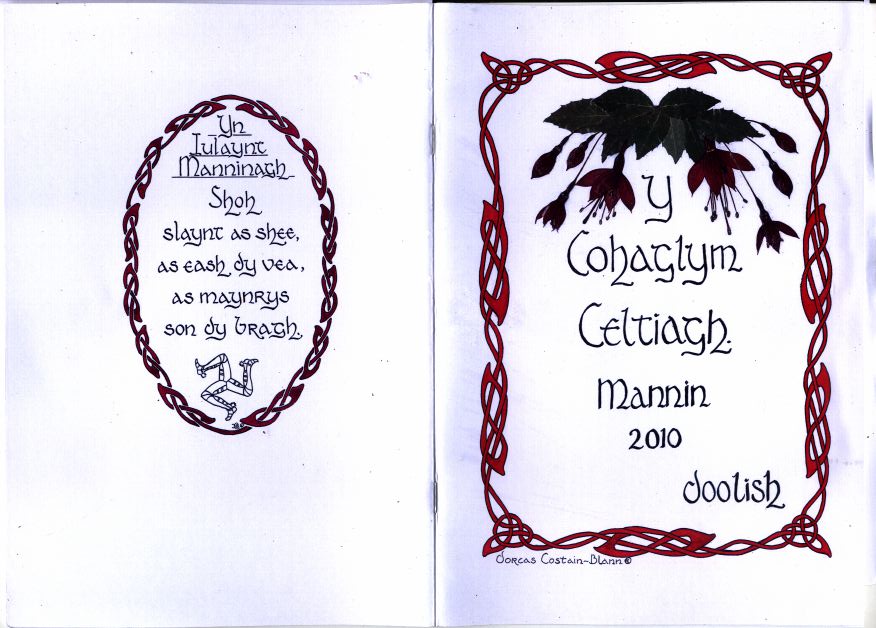 Yn
Iulaynt
Manninagh
Shoh
slaynt as shee,
as eash dy vea,
as maynrys
son dy bragh.
Y
Cohaglym
Celtiagh.
Mannin
2010
doolish
Dorcas Costain-Blann ©